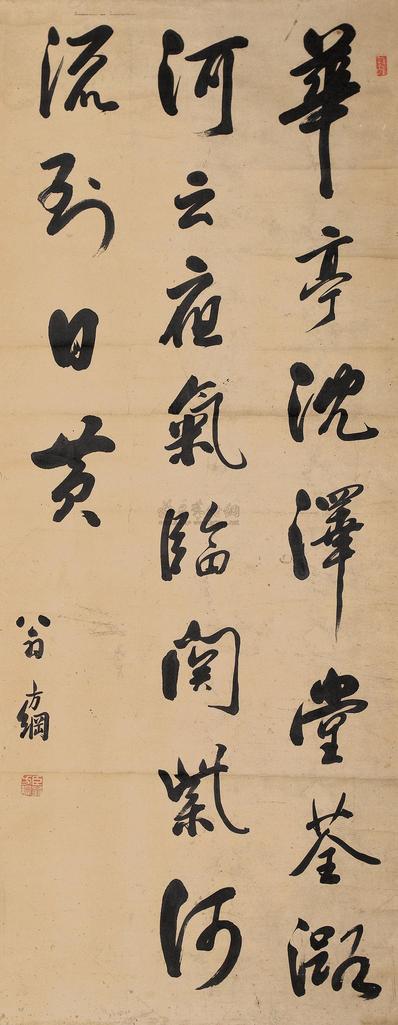 華亭沈澤堂荃潞
河云夜氣臨関紫河
流到日黄
翁方綱